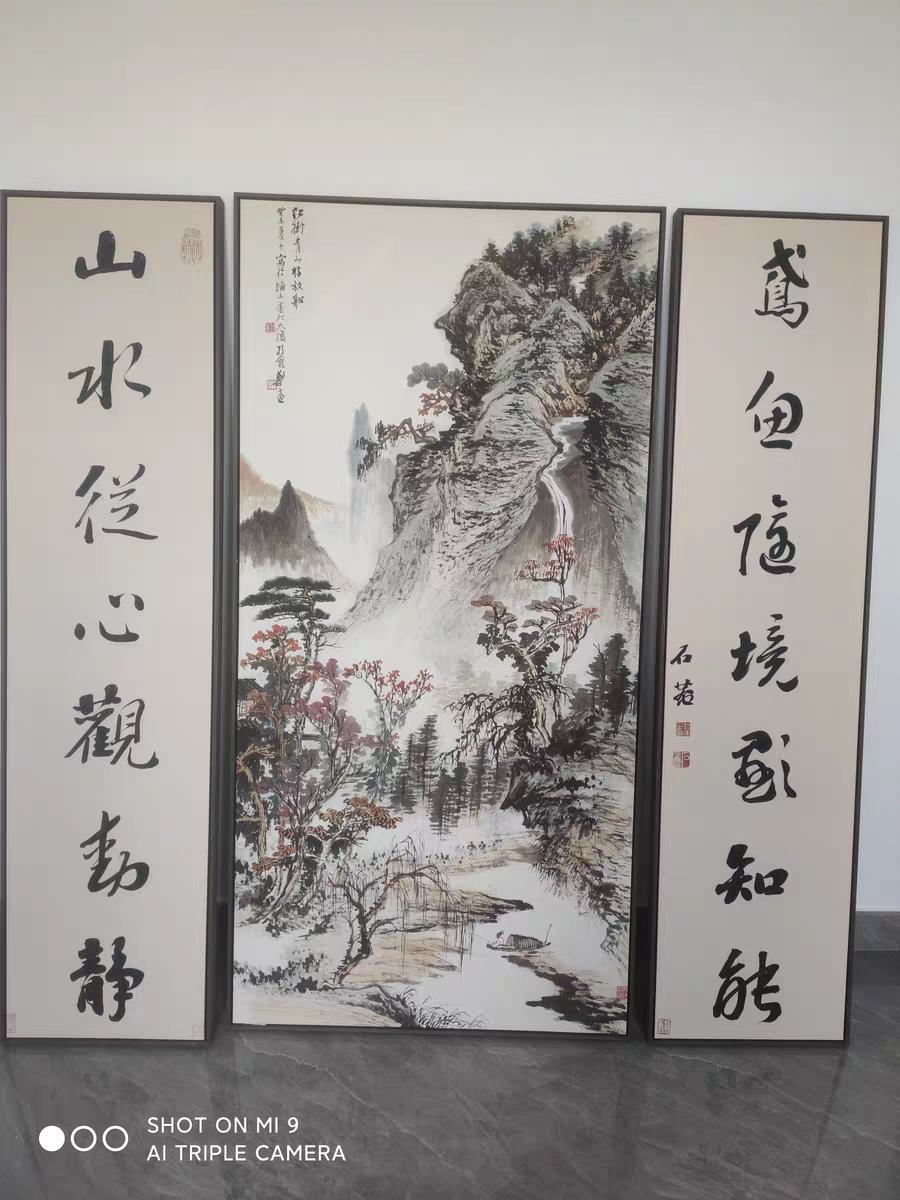 山水從心觀動靜
紅樹青山好放船
鳶魚隨境顯知能
石菴
SHOT ON MI 9
AI TRIPLE CAMERA